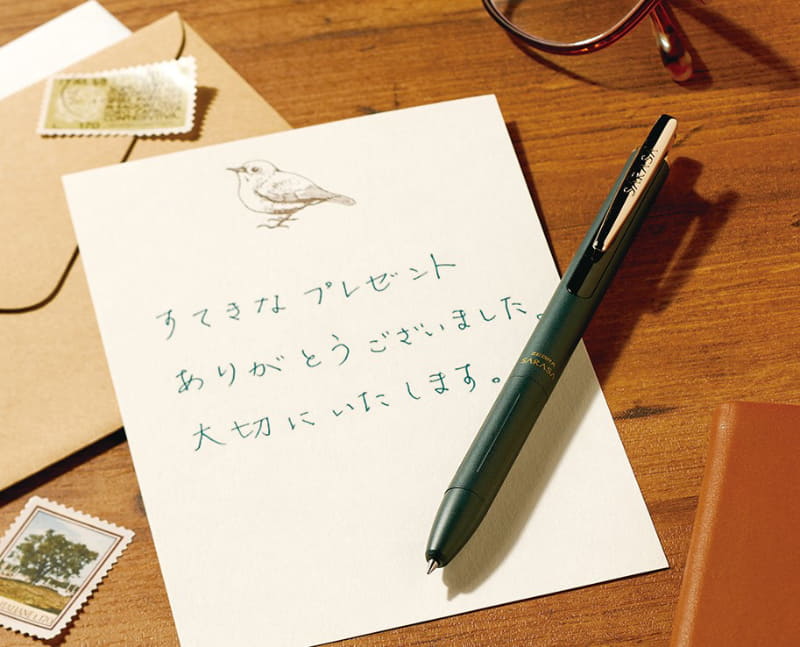 すてきな プレゼント
ありがとうございました。
大切にいたします。
SARASA
ZEBRA
SARASA